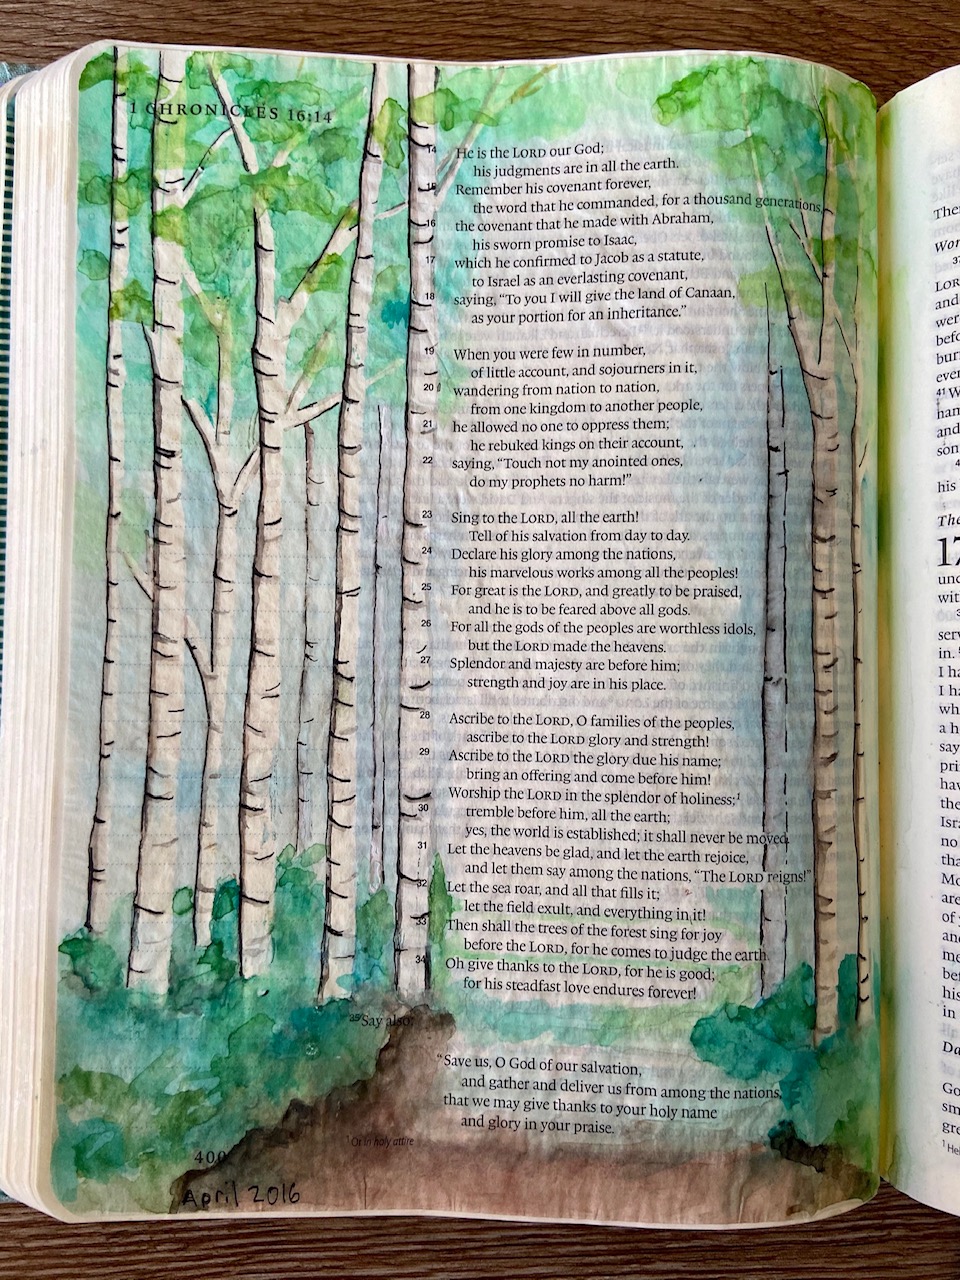 1 CHRONICLES 16:14
14 He is the LORD our God;
his judgments are in all the earth.
15 Remember his covenant forever,
the word that he commanded, for a thousand generations,
16 the covenant that he made with Abraham,
his sworn promise to Isaac,
17 which he confirmed to Jacob as a statute,
to Israel as an everlasting covenant,
18 saying, “To you I will give the land of Canaan,
as your portion for an inheritance.”
19 When you were few in number,
of little account, and sojourners in it,
20 wandering from nation to nation,
from one kingdom to another people,
21 he allowed no one to oppress them;
he rebuked kings on their account,
22 saying, “Touch not my anointed ones,
do my prophets no harm!”
23 Sing to the LORD, all the earth!
Tell of his salvation from day to day.
24 Declare his glory among the nations,
his marvelous works among all the peoples!
25 For great is the LORD, and greatly to be praised,
and he is to be feared above all gods.
26 For all the gods of the peoples are worthless idols,
but the LORD made the heavens.
27 Splendor and majesty are before him;
strength and joy are in his place.
28 Ascribe to the LORD, O families of the peoples,
ascribe to the LORD glory and strength!
29 Ascribe to the LORD the glory due his name;
bring an offering and come before him!
Worship the LORD in the splendor of holiness;1
30 tremble before him, all the earth;
yes, the world is established; it shall never be moved.
31 Let the heavens be glad, and let the earth rejoice,
and let them say among the nations, “The LORD reigns!”
32 Let the sea roar, and all that fills it;
let the field exult, and everything in it!
33 Then shall the trees of the forest sing for joy
before the LORD, for he comes to judge the earth.
34 Oh give thanks to the LORD, for he is good;
for his steadfast love endures forever!
35 Say also:
“Save us, O God of our salvation,
and gather and deliver us from among the nations,
that we may give thanks to your holy name
and glory in your praise.
1 Or in holy attire
400
April 2016
37
and
41
and
his
17
with
in.
I ha
I ha
a h
say
the
no
of
and
his
in